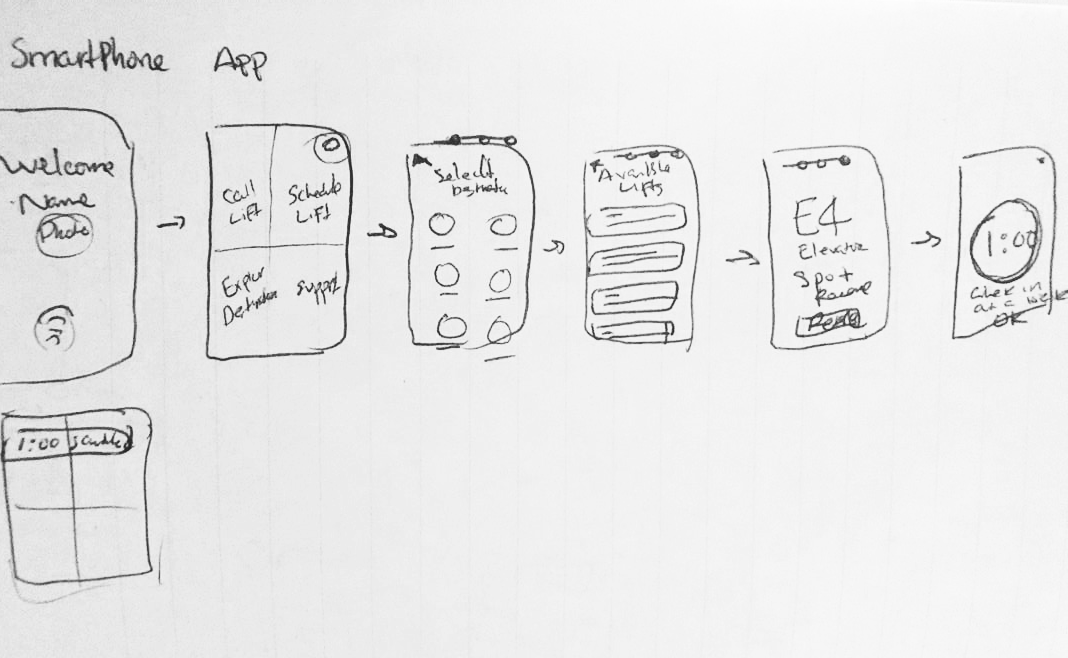 SmartPhone App
Welcome
Name
Photo
Call
Lift
Schedule
Lift
Explor
Support
Select
Available
Lifts
E4
Elevator
Spot
1:00
Check in
at a
OK
1:00